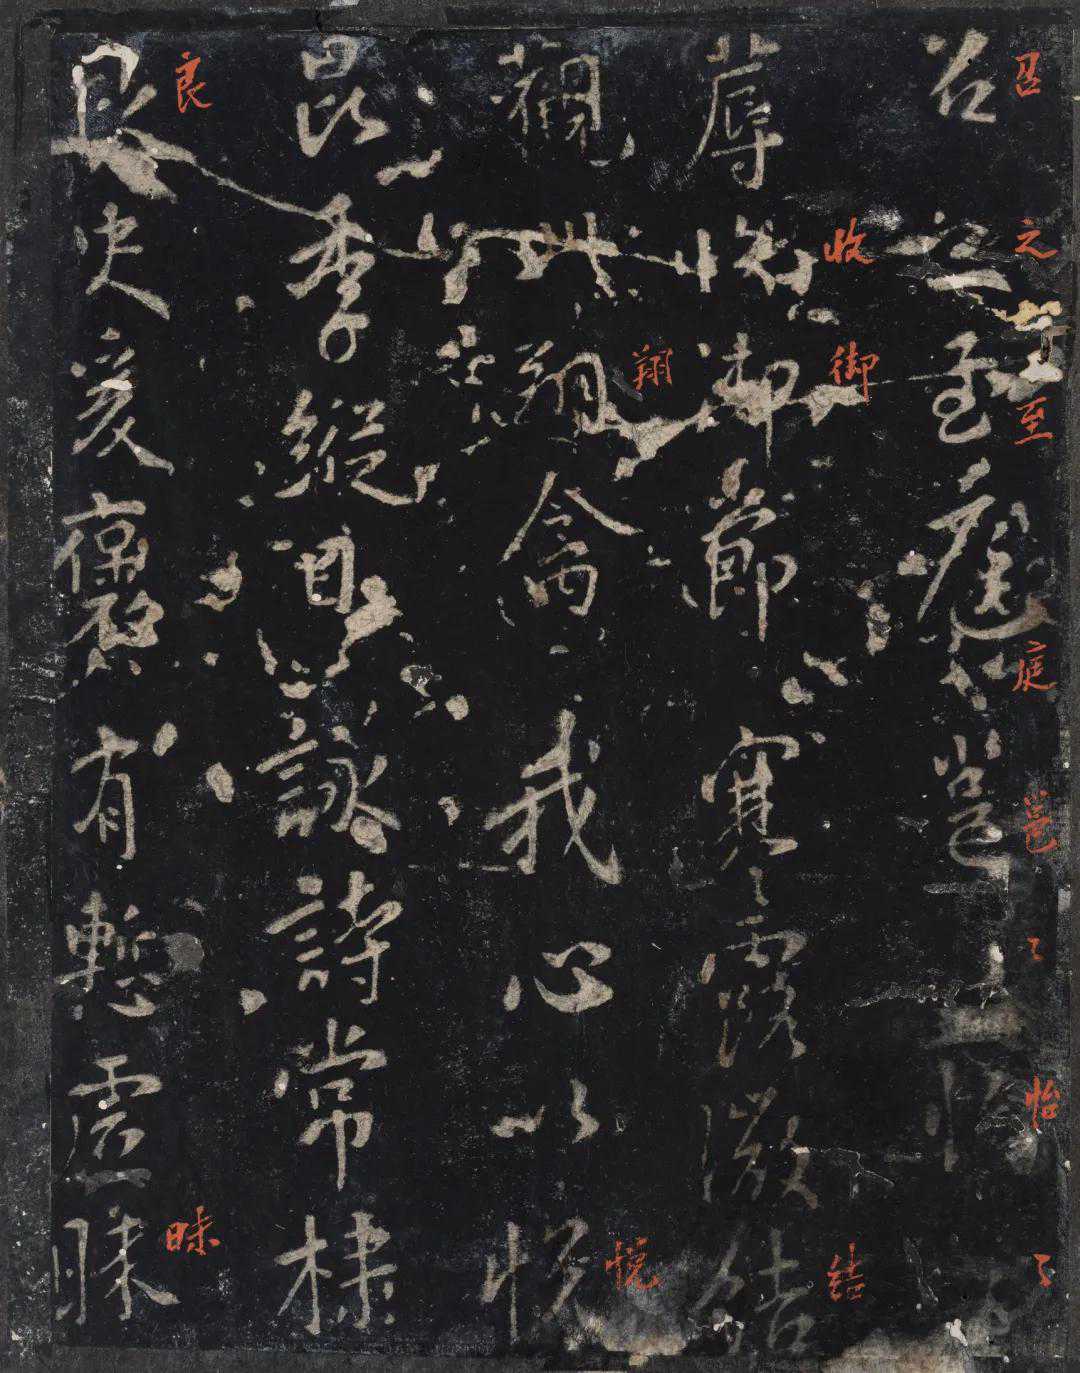 召之至庭邕〻怡〻
召之至庭邕〻怡〻
蓐收御節寒露微結
收御結
觀此翔禽我心以悅
翔悅
昆季縱目詠詩常棣
良史爰褒有慙虛昧
良昧